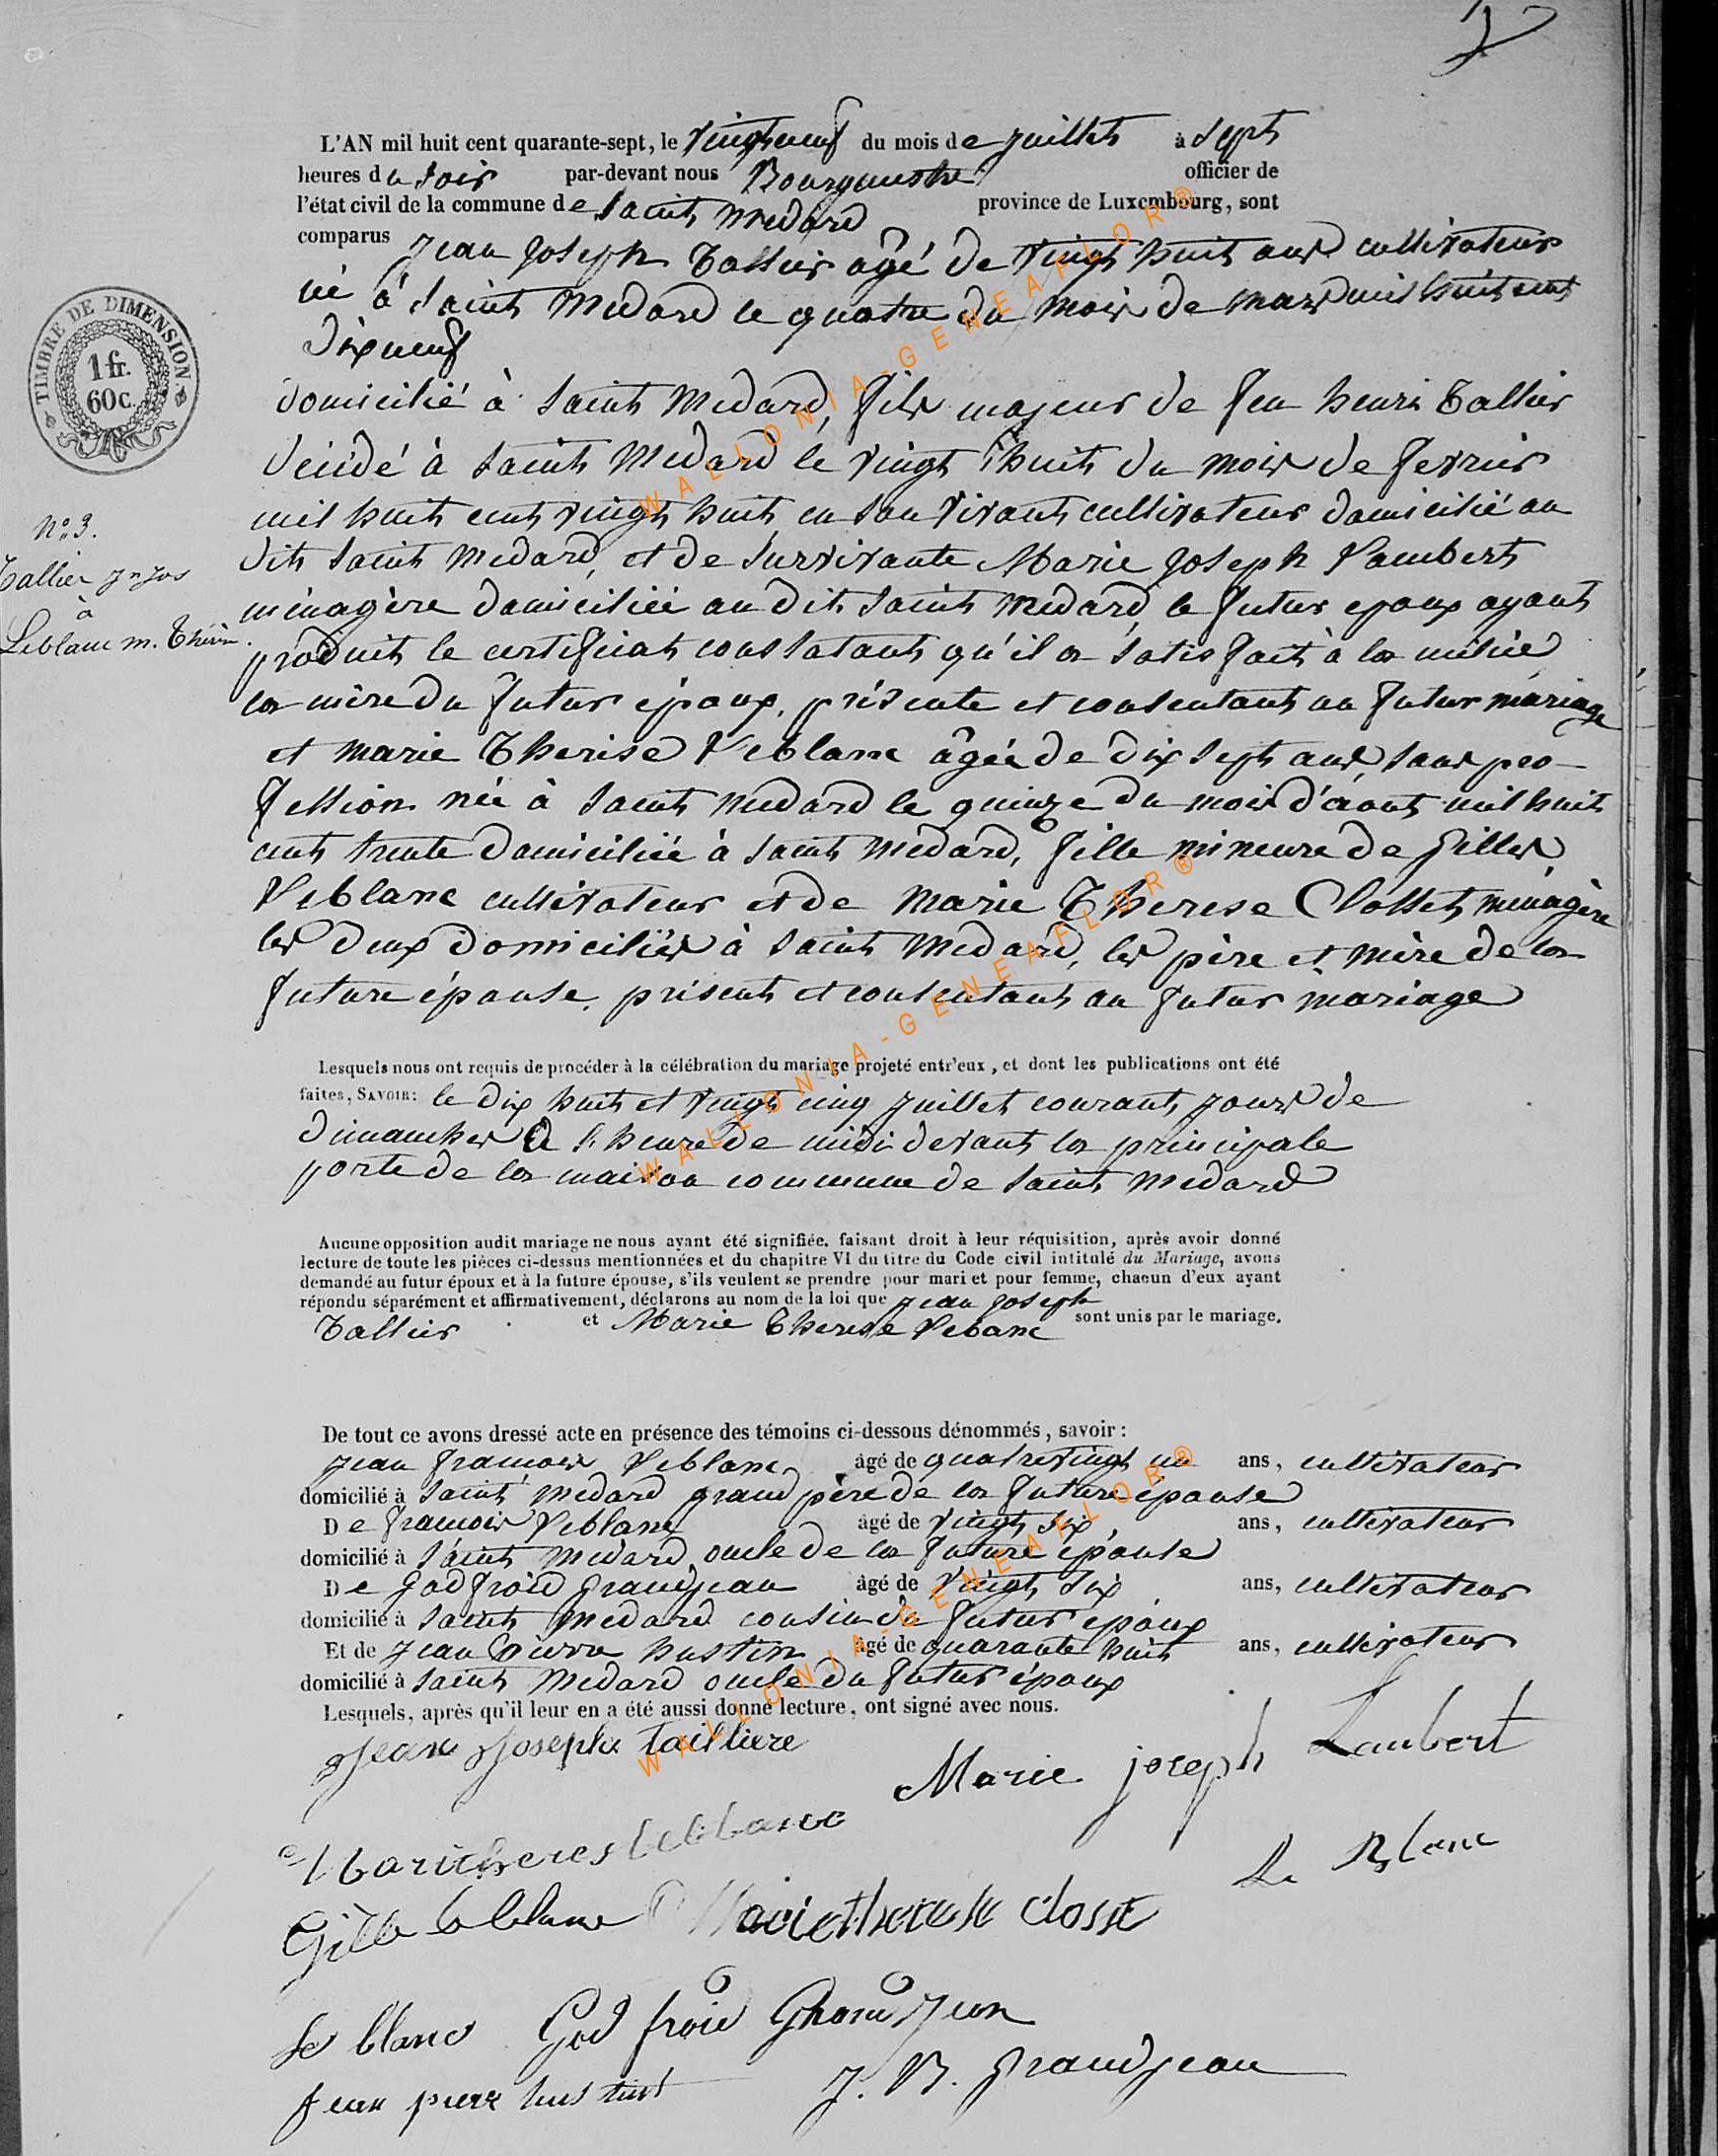 L'AN mil huit cent quarante-sept, le vingtneuf du mois de juillet à sept
heures du soir par-devant nous Bourgmestre officier de
l'état civil de la commune de Saint Medard province de Luxembourg, sont
comparus Jean Joseph Tallier âgé de vingt huit ans cultivateur
né à Saint Medard le quatre du mois de mars mil huit cent
dix neuf
domicilié à Saint Medard, fils majeur de feu henri Tallier
décidé à Saint Medard le vingt huit du mois de fevrier
mil huit cent vingt huit en son vivant cultivateur domicilié au
dit Saint Medard, et de survivante Marie Joseph Lambert
ménagère domiciliée au dit Saint Medard, le futur epoux ayant
produit le certificat constatant qu'il a satisfait à la milice
la mère du futur époux, présente et consentant au futur mariage
et marie Therise Leblanc âgée de dix sept ans, sans pro-
fession née à Saint Medard le quinze du mois d'août mil huit
cent trente domiciliée à Saint Medard, fille mineure de Gilles
Leblanc cultivateur et de Marie Therese Closset ménagère
les deux domiciliés à Saint Medard, les père et mère de la
future épouse, présents et consentant au futur mariage
N° 3.
Tallier Jn Jos
à
Leblanc m. Thérèse
TIMBRE DE DIMENSION
1 fr.
60 c.
Lesquels nous ont requis de procéder à la célébration du mariage projeté entr'eux, et dont les publications ont été
faites, SAVOIR: le dix huit et vingt cinq juillet courant, jours de
dimanches à l'heure de midi devant la principale
porte de la maison commune de Saint Medard
Aucune opposition audit mariage ne nous ayant été signifiée. faisant droit à leur réquisition, après avoir donné
lecture de toute les pièces ci-dessus mentionnées et du chapitre VI du titre du Code civil intitulé du Mariage, avons
demandé au futur époux et à la future épouse, s'ils veulent se prendre pour mari et pour femme, chacun d'eux ayant
répondu séparément et affirmativement, déclarons au nom de la loi que Jean Joseph
Tallier et Marie Therese Lebanc sont unis par le mariage.
De tout ce avons dressé acte en présence des témoins ci-dessous dénommés, savoir :
Jean François Leblanc, âgé de quatrevingt un ans, cultivateur
domicilié à Saint Medard grand père de la future épouse
De François Leblanc âgé de vingt six ans, cultivateur
domicilié à Saint Medard, oncle de la future épouse
De Godfroid Grandjean âgé de vingt six ans, cultivateur
domicilié à Saint Medard cousin du futur epoux
Et de Jean Pierre hustin âgé de quarante huit ans, cultivateur
domicilié à Saint Medard oncle du futur époux
Lesquels, après qu'il leur en a été aussi donné lecture, ont signé avec nous.
Jean Joseph Tailliere
Marie joseph Lambert
Marietheres leblanc
Le Blanc
Gille leblanc Marietherese closse
Le blanc God froid GrandJean
Jean piere hustin J. B. Grandjean
WALLONIA-GENEAFLOR®
WALLONIA-GENEAFLOR®
WALLONIA-GENEAFLOR®